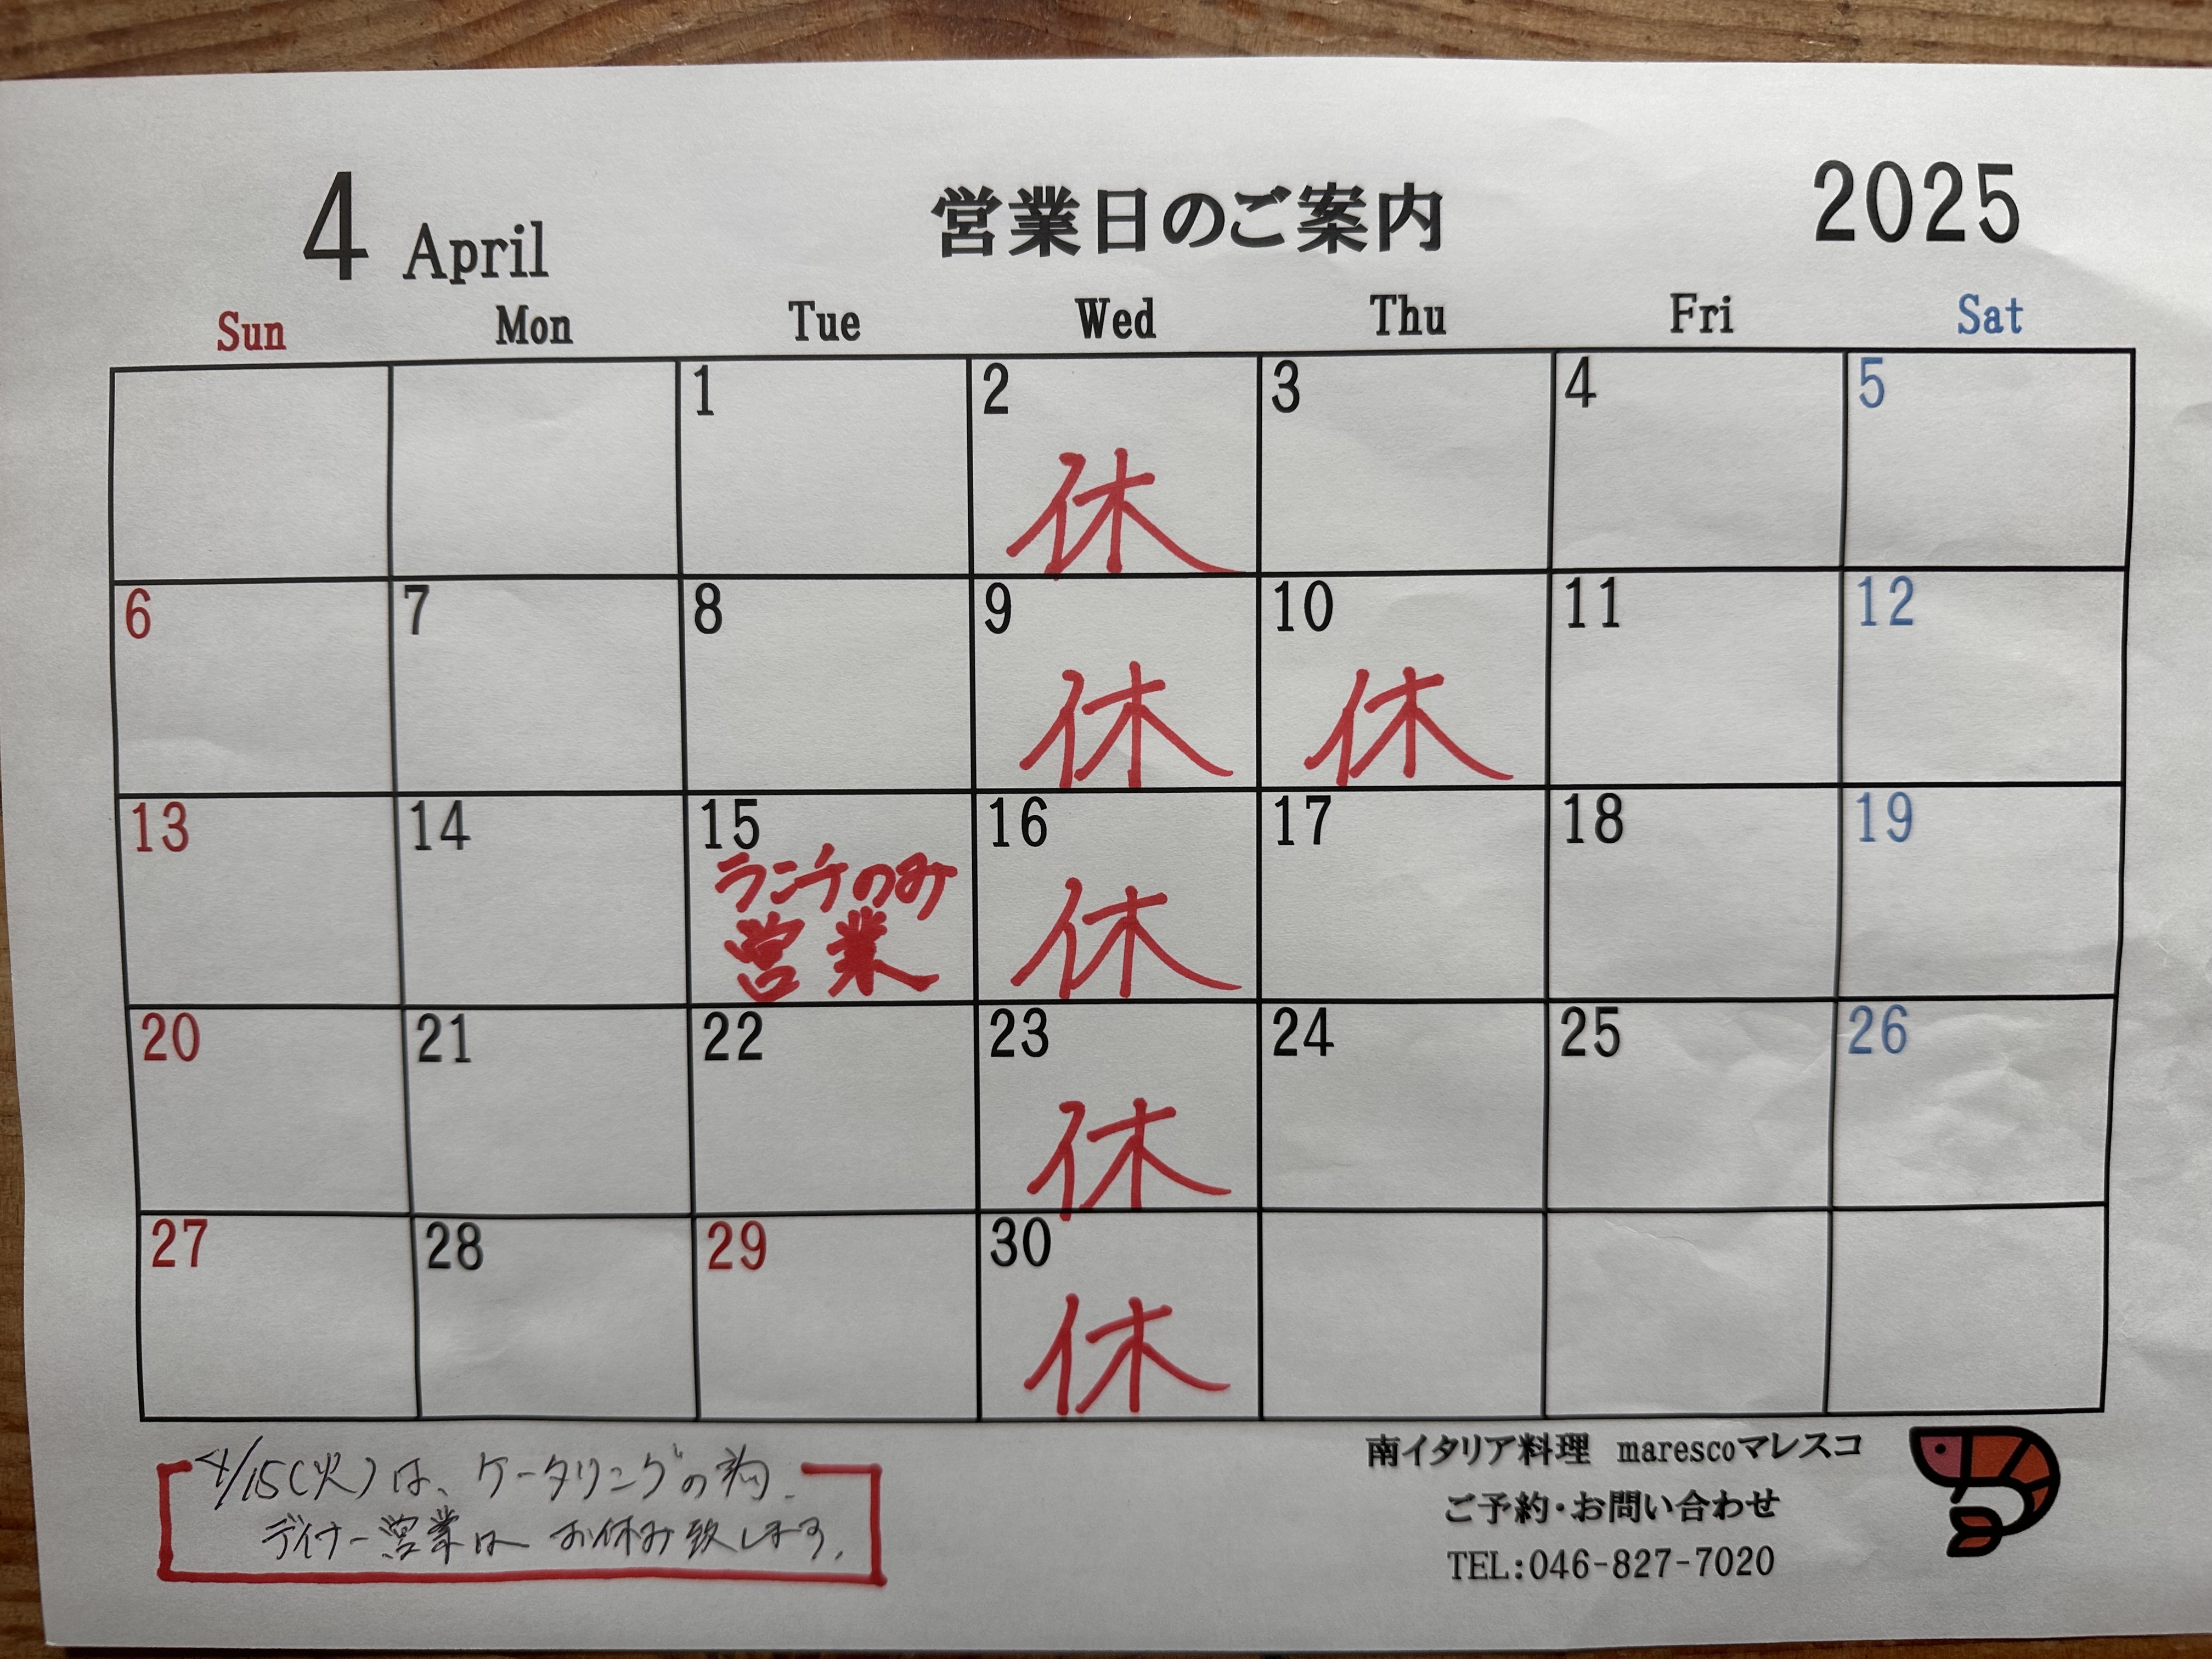 4 April 営業日のご案内 2025
Sun Mon Tue Wed Thu Fri Sat
1 2 3 4 5
休
6 7 8 9 10 11 12
休 休
13 14 15 16 17 18 19
ランチのみ
営業 休
20 21 22 23 24 25 26
休
27 28 29 30
休
4/15(火)は、ケータリングの為.
ディナー営業はお休み致します.
南イタリア料理 marescoマレスコ
ご予約・お問い合わせ
TEL:046-827-7020